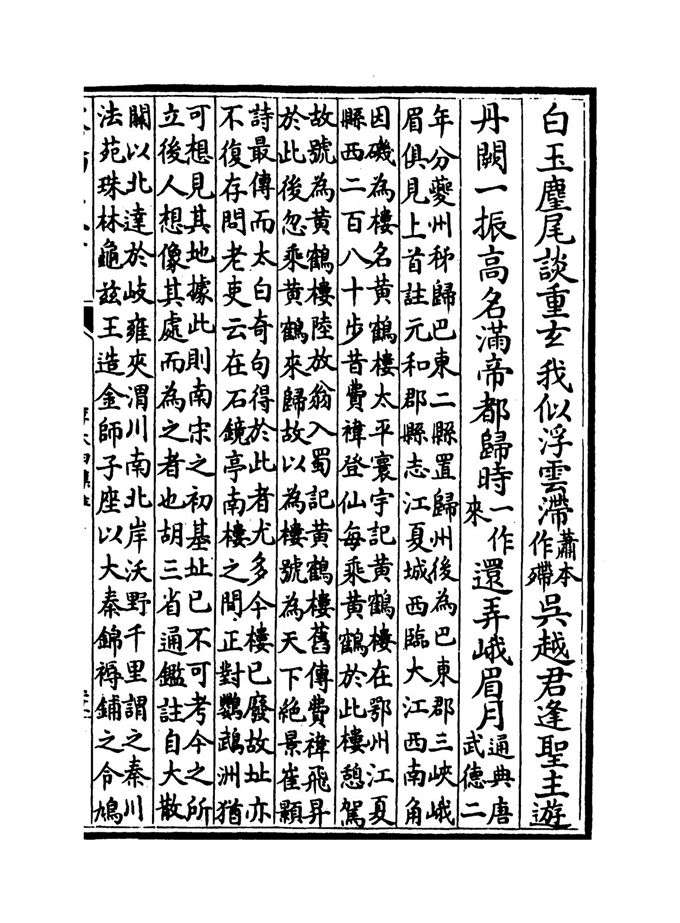 白玉麈尾談重玄我似浮雲滯蕭本作殢吳越君逢聖主遊
丹闕一振高名滿帝都歸時一作來還弄峨眉月通典唐武德二
年分夔州秭歸巴東二縣置歸州後為巴東郡三峽峨
眉俱見上首註元和郡縣志江夏城西臨大江西南角
因磯為樓名黃鶴樓太平寰宇記黃鶴樓在鄂州江夏
縣西二百八十步昔費禕登仙每乘黃鶴於此樓憩駕
故號為黃鶴樓陸放翁入蜀記黃鶴樓舊傳費禕飛昇
於此後忽乘黃鶴來歸故以為樓號為天下絶景崔顥
詩最傳而太白奇句得於此者尤多今樓已廢故址亦
不復存問老吏云在石鏡亭南樓之間正對鸚鵡洲猶
可想見其地據此則南宋之初基址已不可考今之所
立後人想像其處而為之者也胡三省通鑑註自大散
關以北達於岐雍夾渭川南北岸沃野千里謂之秦川
法苑珠林龜兹王造金師子座以大秦錦褥鋪之令鳩